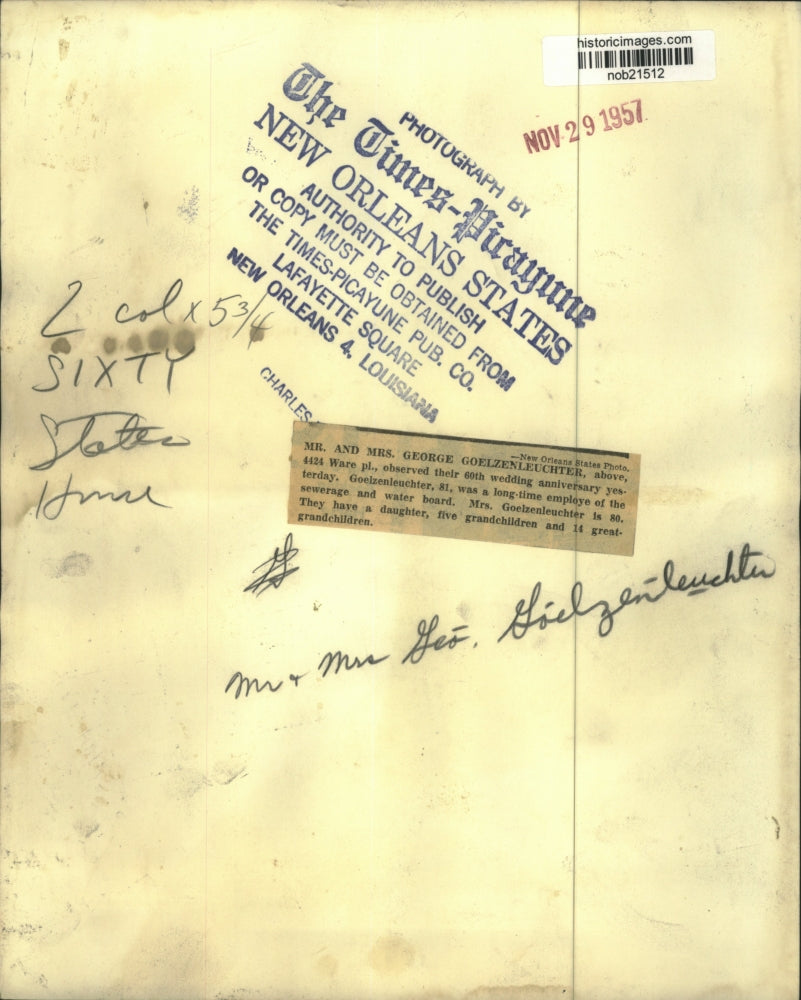 historicimages.com
nob21512
NOV 29 1957
PHOTOGRAPH BY
The Times-Picayune
NEW ORLEANS STATES
AUTHORITY TO PUBLISH
OR COPY MUST BE OBTAINED FROM
THE TIMES-PICAYUNE PUB. CO.
LAFAYETTE SQUARE
NEW ORLEANS 4, LOUISIANA
CHARLES
2 col x 5 3/4
SIXTY
States
—New Orleans States Photo.
MR. AND MRS. GEORGE GOELZENLEUCHTER, above,
4424 Ware pl., observed their 60th wedding anniversary yes-
terday. Goelzenleuchter, 81, was a long-time employe of the
sewerage and water board. Mrs. Goelzenleuchter is 80.
They have a daughter, five grandchildren and 14 great-
grandchildren.
Mr + Mrs Geo. Goelzenleuchter